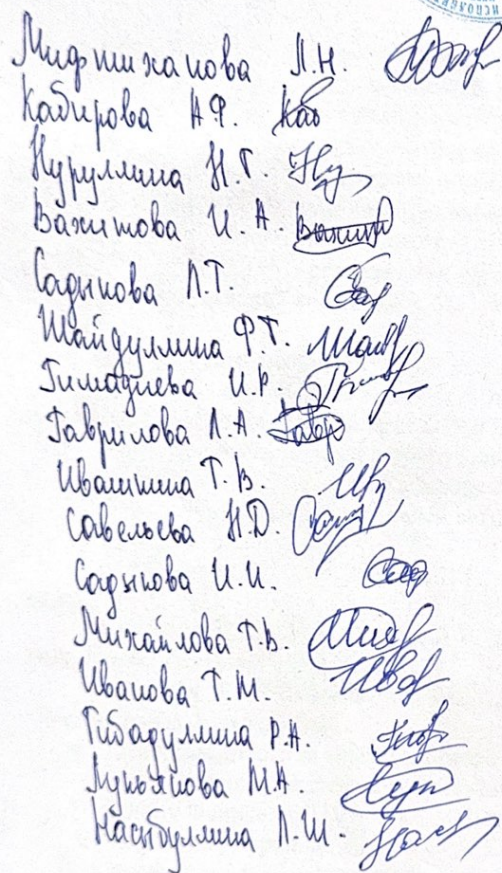 Мифтиханова Л.Н.
Кабирова А.Ф. Каб
Нуруллина Н.Г.
Вахитова И.А.
Садыкова Л.Т.
Шайдуллина Ф.Т.
Гимадиева И.Р.
Гаврилова Л.А.
Ивашкина Т.В.
Савельева Н.Д.
Садыкова И.И.
Михайлова Т.В.
Иванова Т.М.
Гибадуллина Р.А.
Лукьянова М.А.
Насыбуллина Л.Ш.